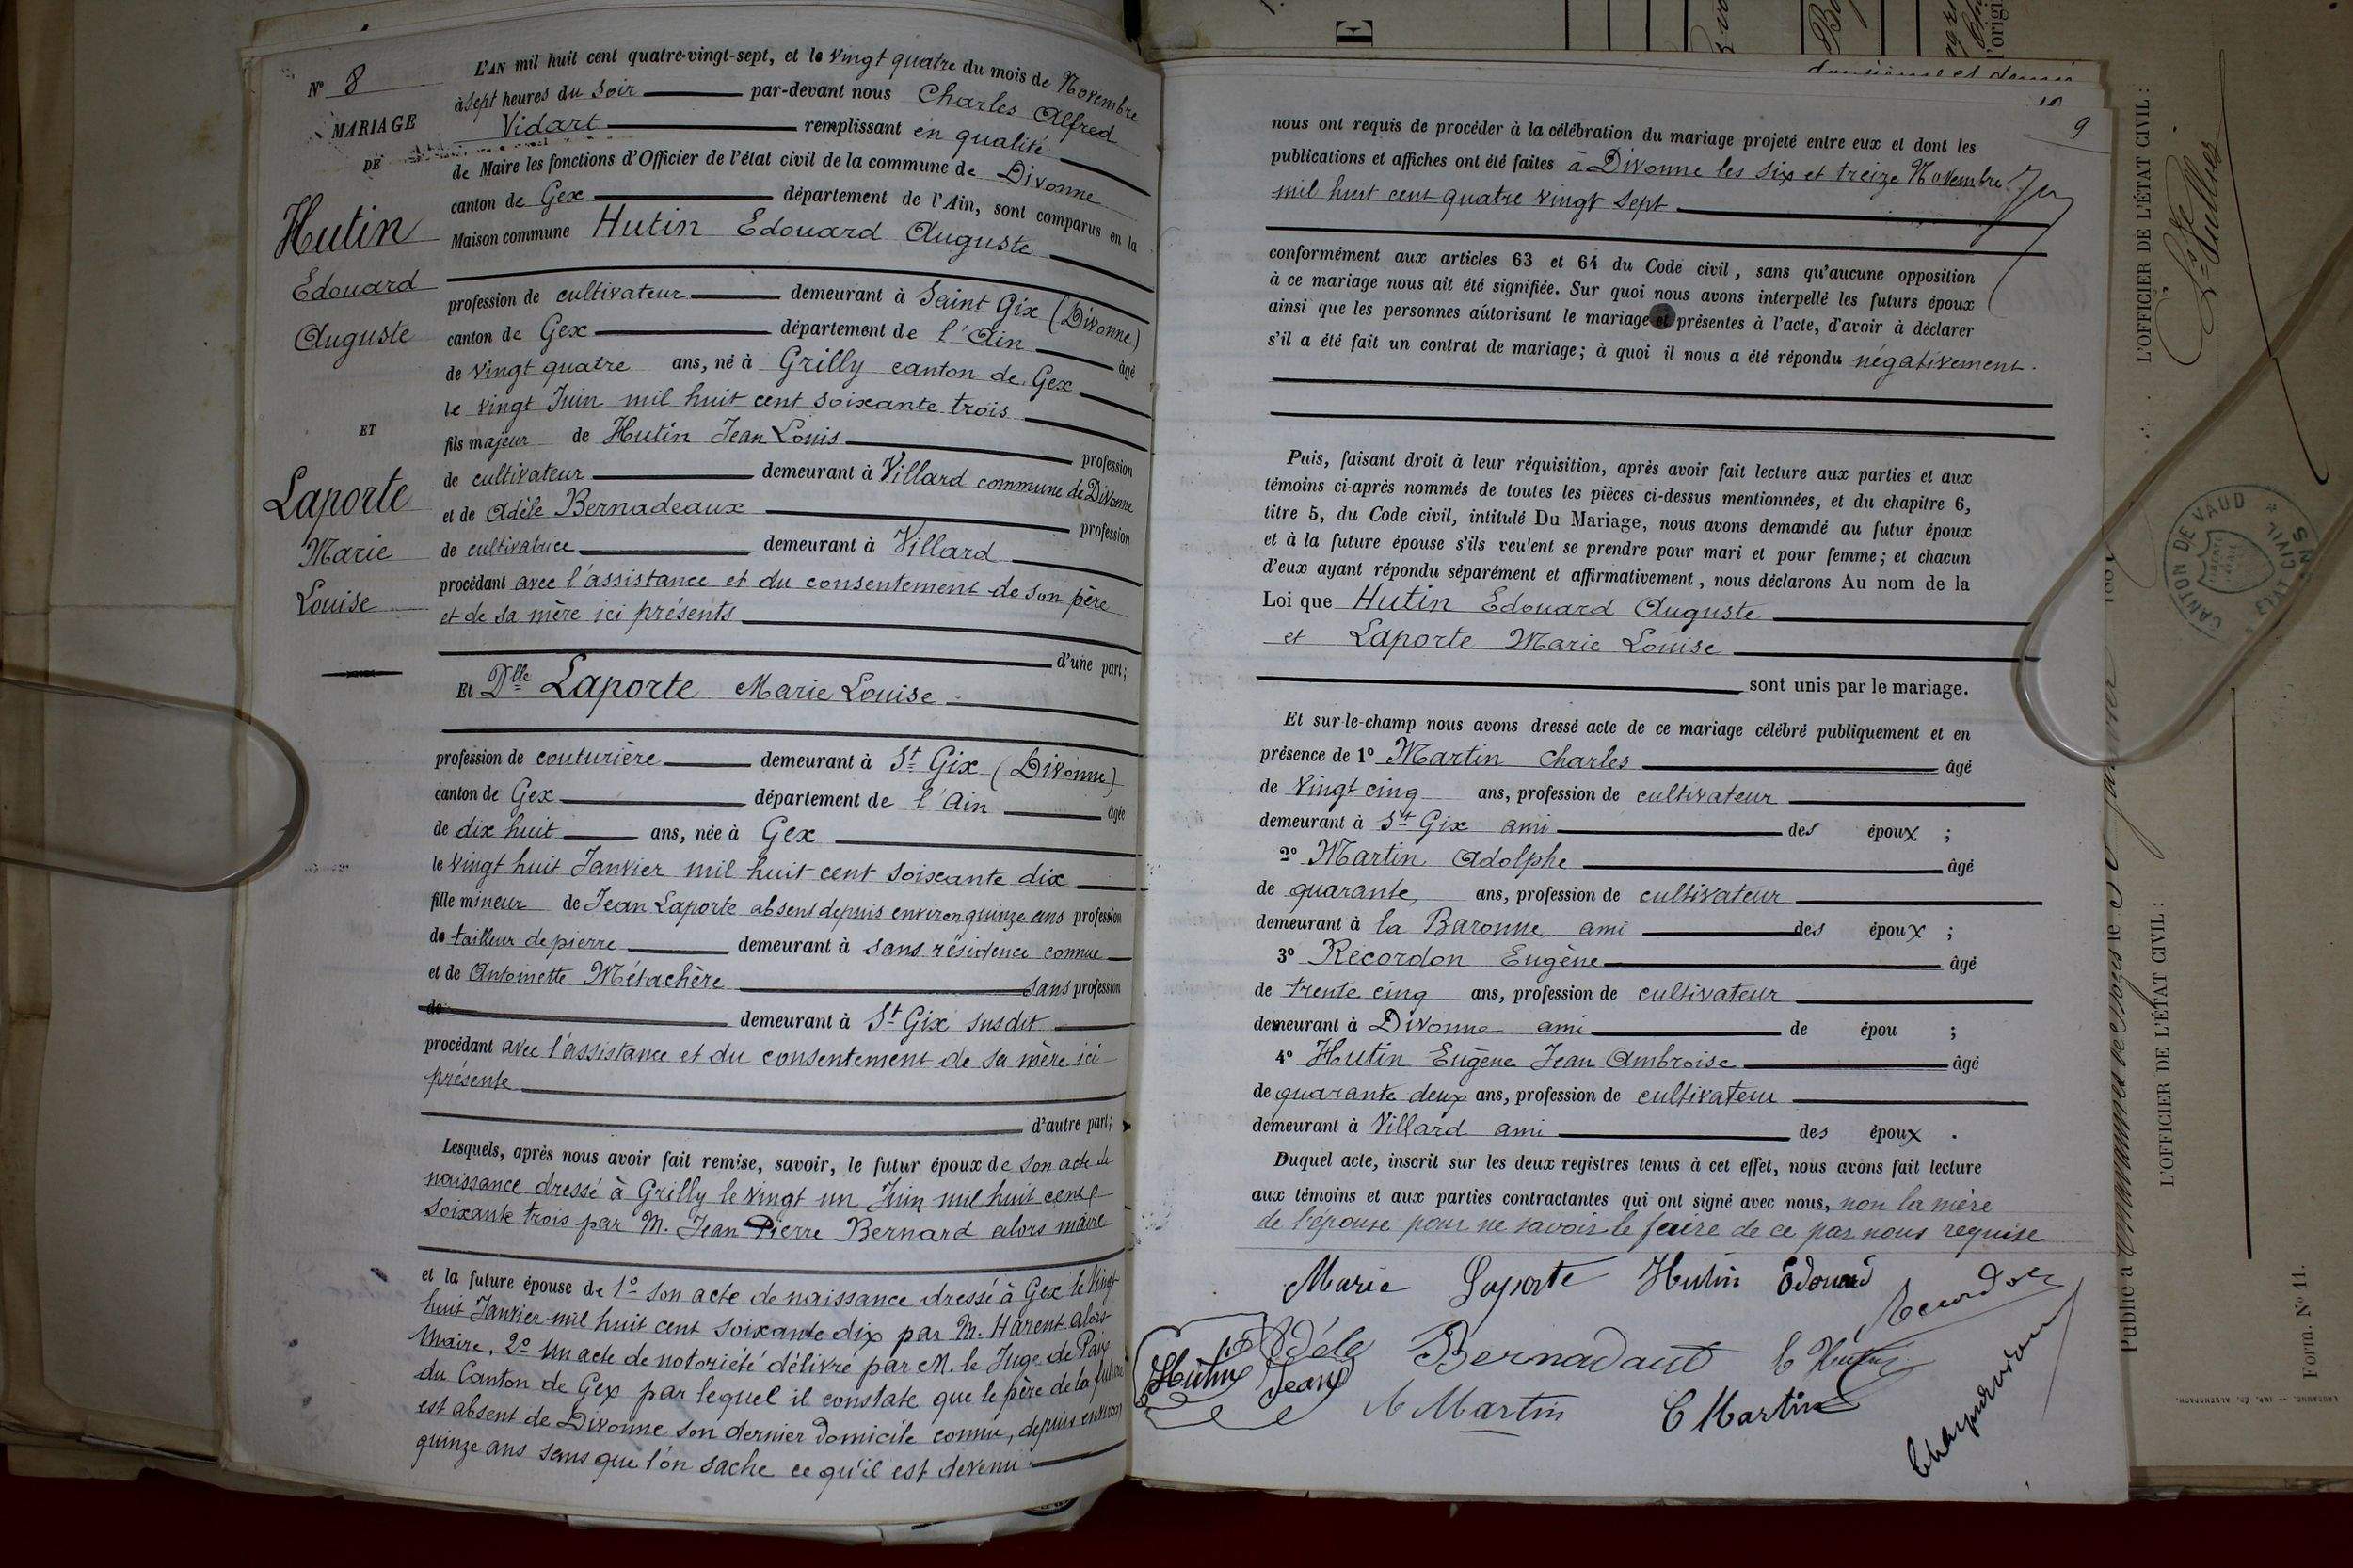 N° 8
MARIAGE
DE
Hutin
Edouard
Auguste
ET
Laporte
Marie
Louise
L'AN mil huit cent quatre-vingt-sept, et le vingt quatre du mois de Novembre
à sept heures du soir par-devant nous Charles Alfred
Vidart remplissant en qualité
de Maire les fonctions d'Officier de l'état civil de la commune de Divonne
canton de Gex département de l'Ain, sont comparus en la
Maison commune Hutin Edouard Auguste
profession de cultivateur demeurant à Saint Gix (Divonne)
canton de Gex département de l'Ain âgé
de vingt quatre ans, né à Grilly canton de Gex
le vingt Juin mil huit cent soixante trois
fils majeur de Hutin Jean Louis profession
de cultivateur demeurant à Villard commune de Divonne
et de Adèle Bernadeaux profession
de cultivatrice demeurant à Villard
procédant avec l'assistance et du consentement de son père
et de sa mère ici présents
d'une part;
Et Dlle Laporte Marie Louise
profession de couturière demeurant à St Gix (Divonne)
canton de Gex département de l'Ain âgée
de dix huit ans, née à Gex
le vingt huit Janvier mil huit cent soixante dix
fille mineur de Jean Laporte absent depuis environ quinze ans profession
de tailleur de pierre demeurant à sans résidence connue
et de Antoinette Métachère sans profession
de demeurant à St Gix susdit
procédant avec l'assistance et du consentement de sa mère ici
présente
d'autre part;
Lesquels, après nous avoir fait remise, savoir, le futur époux de son acte de
naissance dressé à Grilly le vingt un Juin mil huit cent
soixante trois par M. Jean Pierre Bernard alors maire
et la future épouse de 1° son acte de naissance dressé à Gex le vingt
huit Janvier mil huit cent soixante dix par M. Harent alors
Maire, 2° Un acte de notoriété délivré par M. le Juge de Paix
du Canton de Gex par lequel il constate que le père de la future
est absent de Divonne son dernier domicile connu, depuis environ
quinze ans sans que l'on sache ce qu'il est devenu
9
nous ont requis de procéder à la célébration du mariage projeté entre eux et dont les
publications et affiches ont été faites à Divonne les six et treize Novembre
mil huit cent quatre vingt sept
conformément aux articles 63 et 64 du Code civil, sans qu'aucune opposition
à ce mariage nous ait été signifiée. Sur quoi nous avons interpellé les futurs époux
ainsi que les personnes autorisant le mariage et présentes à l'acte, d'avoir à déclarer
s'il a été fait un contrat de mariage; à quoi il nous a été répondu négativement.
Puis, faisant droit à leur réquisition, après avoir fait lecture aux parties et aux
témoins ci-après nommés de toutes les pièces ci-dessus mentionnées, et du chapitre 6,
titre 5, du Code civil, intitulé Du Mariage, nous avons demandé au futur époux
et à la future épouse s'ils veu'ent se prendre pour mari et pour femme; et chacun
d'eux ayant répondu séparément et affirmativement, nous déclarons Au nom de la
Loi que Hutin Edouard Auguste
et Laporte Marie Louise
sont unis par le mariage.
Et sur-le-champ nous avons dressé acte de ce mariage célébré publiquement et en
présence de 1° Martin Charles âgé
de vingt cinq ans, profession de cultivateur
demeurant à St Gix ami des époux ;
2° Martin Adolphe âgé
de quarante ans, profession de cultivateur
demeurant à la Baronne ami des époux ;
3° Recordon Eugène âgé
de trente cinq ans, profession de cultivateur
demeurant à Divonne ami de épou ;
4° Hutin Eugène Jean Ambroise âgé
de quarante deux ans, profession de cultivateur
demeurant à Villard ami des époux .
Duquel acte, inscrit sur les deux registres tenus à cet effet, nous avons fait lecture
aux témoins et aux parties contractantes qui ont signé avec nous, non la mère
de l'épouse pour ne savoir le faire de ce par nous requise
Marie Laporte Hutin Edouard
Recordon
Adèle Bernadaut
Hutin Jean
Martin C Martin
L'OFFICIER DE L'ÉTAT CIVIL :
CANTON DE VAUD
ÉTAT CIVIL
L'OFFICIER DE L'ÉTAT CIVIL :
Publié à
Form. N° 11.